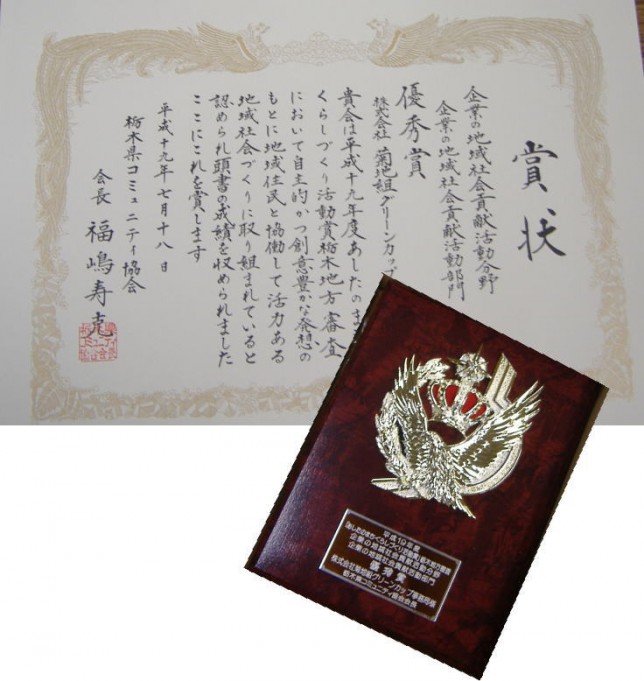 賞状
企業の地域社会貢献活動分野
企業の地域社会貢献活動部門
優秀賞
株式会社 菊地組グリーンカップ
貴会は平成十九年度あしたのま
くらしづくり活動賞栃木地方審査
において自主的かつ創意豊かな発想の
もとに地域住民と協働して活力ある
地域社会づくりに取り組まれていると
認められ頭書の成績を収められました
ここにこれを賞します
平成十九年七月十八日
栃木県コミュニティ協会
会長 福嶋寿克
平成19年度
「あしたのまち・くらしづくり活動賞」栃木地方審査
企業の地域社会貢献活動分野
企業の地域社会貢献活動部門
優秀賞
株式会社菊地組グリーンカップ事務局様
栃木県コミュニティ協会会長